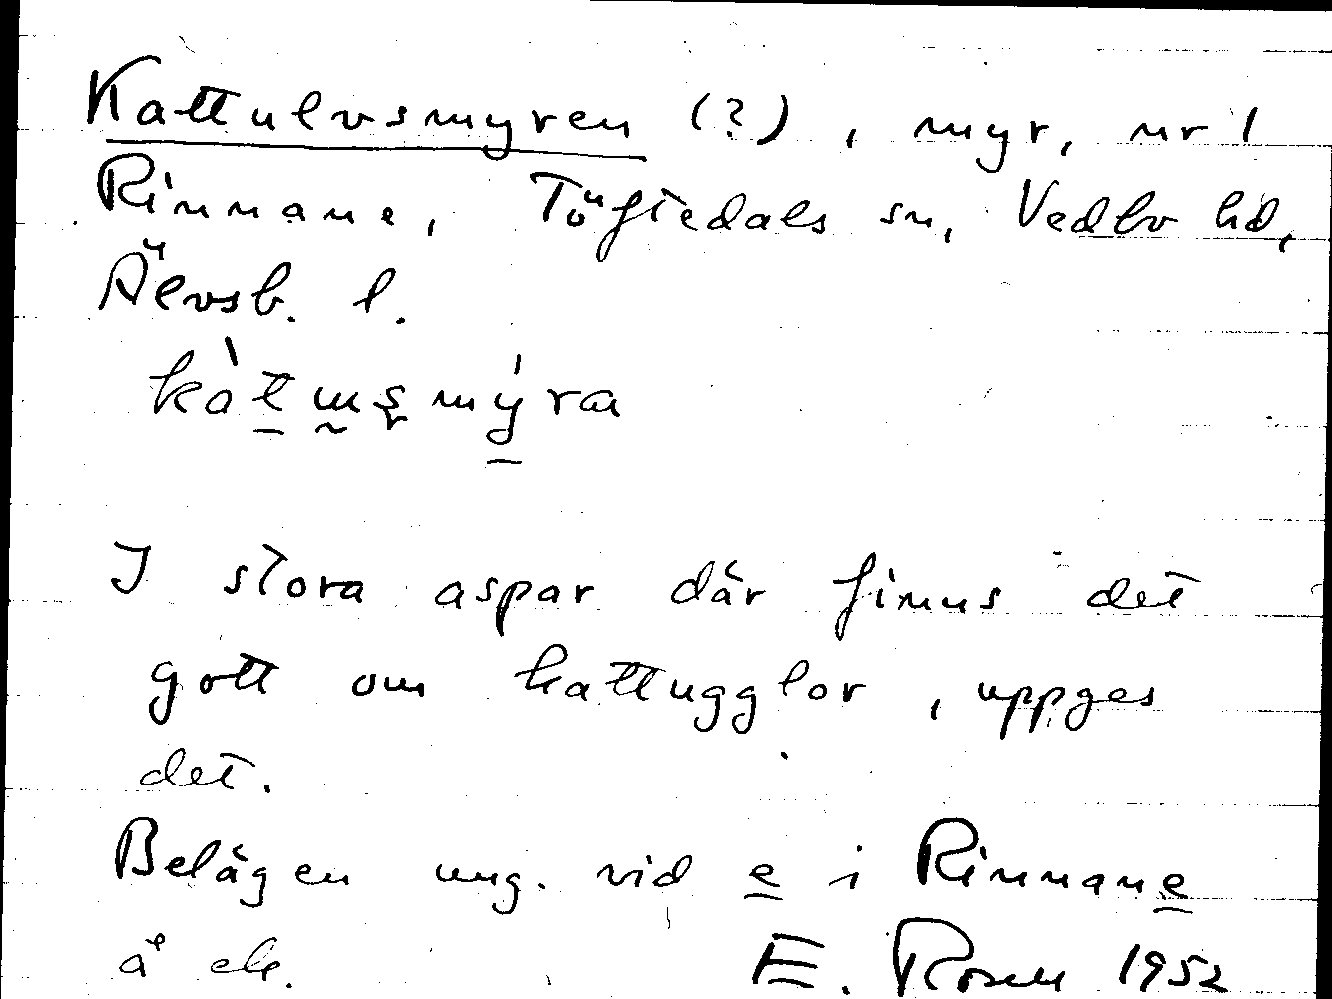 Kattulvsmyren (?), myr, nr 1
Rinnane, Töftedals sn, Vedbo hd,
Älvsb. l.
I stora aspar där finns det
gott om kattugglor, uppges
det.
Belägen ung. vid e i Rinnane
å ek. E. Rosell 1952